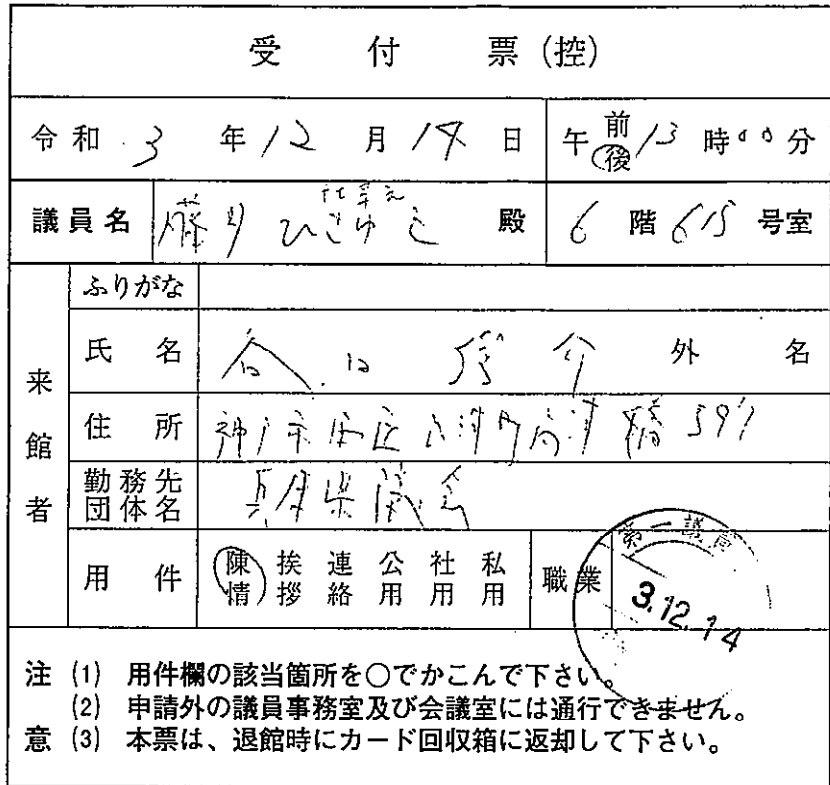 受付票(控)
令和 3 年 12 月 14 日 午前後 13 時 00 分
議員名 ひさゆき 殿 6 階 615 号室
ふりがな
来館者
氏名 介 外 名
住所 神戸市西区 591
勤務先団体名 兵庫県議会
用件 陳情 挨拶 連絡 公用 社用 私用 職業
第一議員
3.12.14
注意
(1) 用件欄の該当箇所を○でかこんで下さい。
(2) 申請外の議員事務室及び会議室には通行できません。
(3) 本票は、退館時にカード回収箱に返却して下さい。